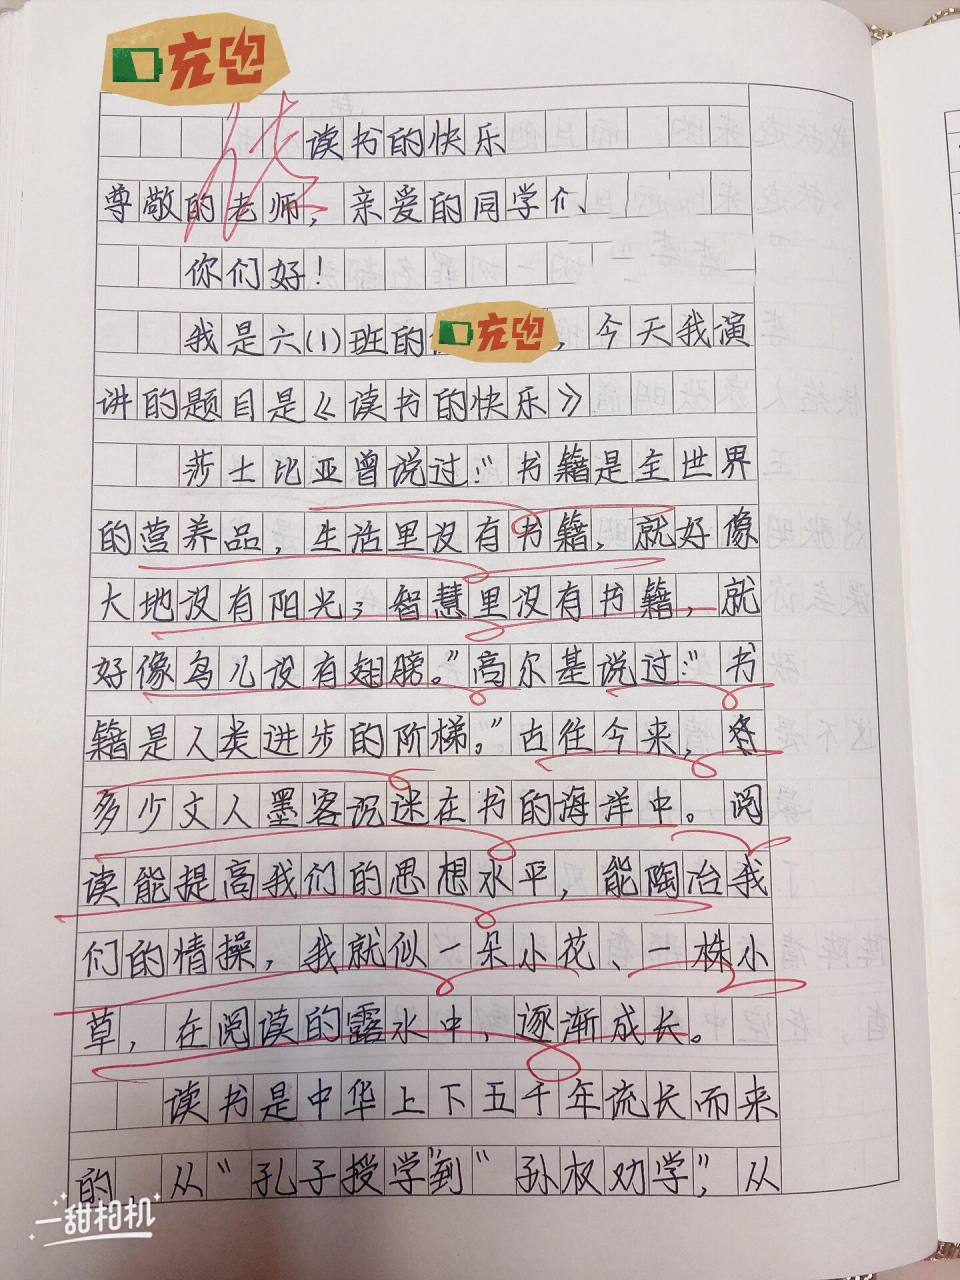 充电
读书的快乐
尊敬的老师，亲爱的同学
你们好！
我是六(1)班的 充电 ，今天我演
讲的题目是《读书的快乐》
莎士比亚曾说过：“书籍是全世界
的营养品，生活里没有书籍，就好像
大地没有阳光；智慧里没有书籍，就
好像鸟儿没有翅膀。”高尔基说过：“书
籍是人类进步的阶梯。”古往今来，
多少文人墨客沉迷在书的海洋中。阅
读能提高我们的思想水平，能陶冶我
们的情操，我就似一朵小花、一株小
草，在阅读的露水中，逐渐成长。
读书是中华上下五千年流长而来
的，从“孔子授学”到“孙权劝学”，从
一甜相机